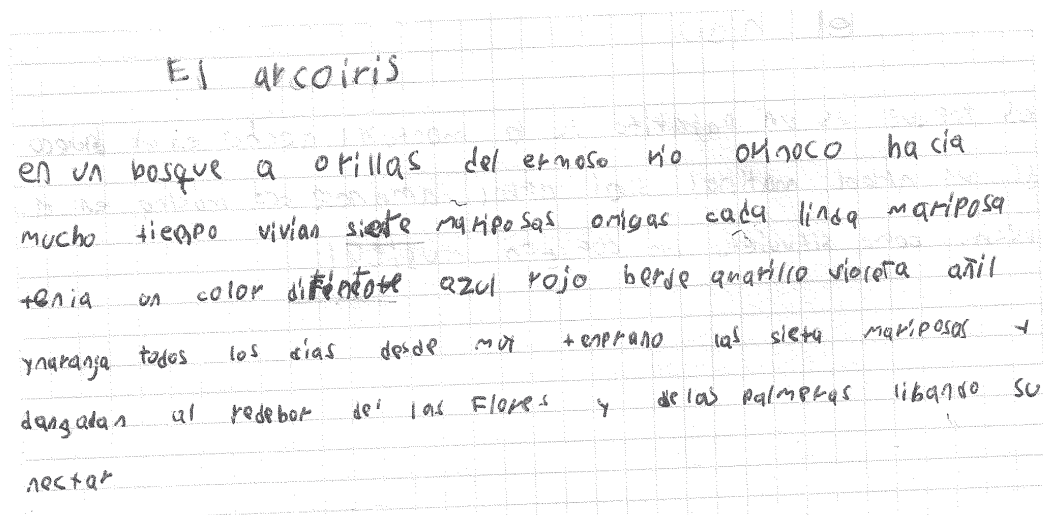 El arcoiris
en un bosque a orillas del ermoso rio orinoco hacia
mucho tiempo vivian siete mariposas omigas cada linda mariposa
tenia un color difentote azul rojo berde amarillo violeta añil
ynaranja todos los dias desde mui temprano las sieta mariposas y
dangadan al redebor del las Flores y de las palmeras libando su
nectar